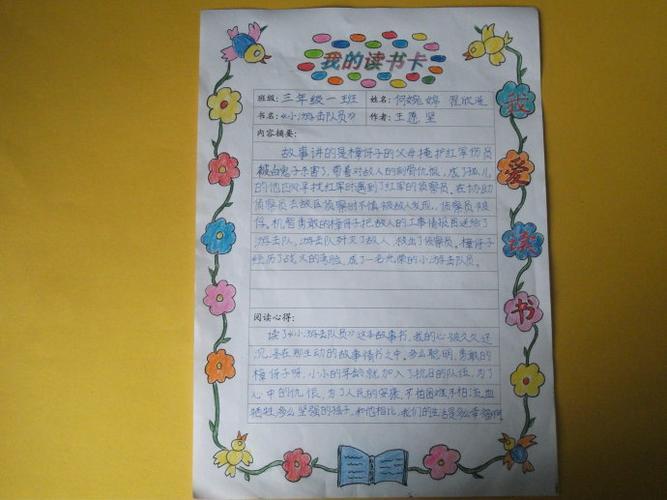 我的读书卡
班级: 三年级一班 姓名: 何婉婷 程欣
书名: 《小游击队员》 作者: 王愿坚
内容摘要:
故事讲的是樟伢子的父母掩护红军伤员
被白鬼子杀害了,带着对敌人的刻骨仇恨,成了孤儿
的他在寻找红军时遇到了红军的侦察员,在协助
侦察员去敌区侦察时不慎被敌人发现,侦察员被
俘。机智勇敢的樟伢子把敌人的工事情报送给了
游击队,游击队歼灭了敌人,救出了侦察员。樟伢子
经历了战火的考验,成了一名光荣的小游击队员。
阅读心得:
读了《小游击队员》这本故事书,我的心被久久这
沉浸在那生动的故事情节之中,多么聪明,勇敢的
樟伢子呀,小小的年龄就加入了抗日的队伍,为了
心中的仇恨,为了人民的安康,不怕困难不怕流血
牺牲,多么坚强的孩子,和他相比,我们的生活是多么幸福啊
我
爱
读
书